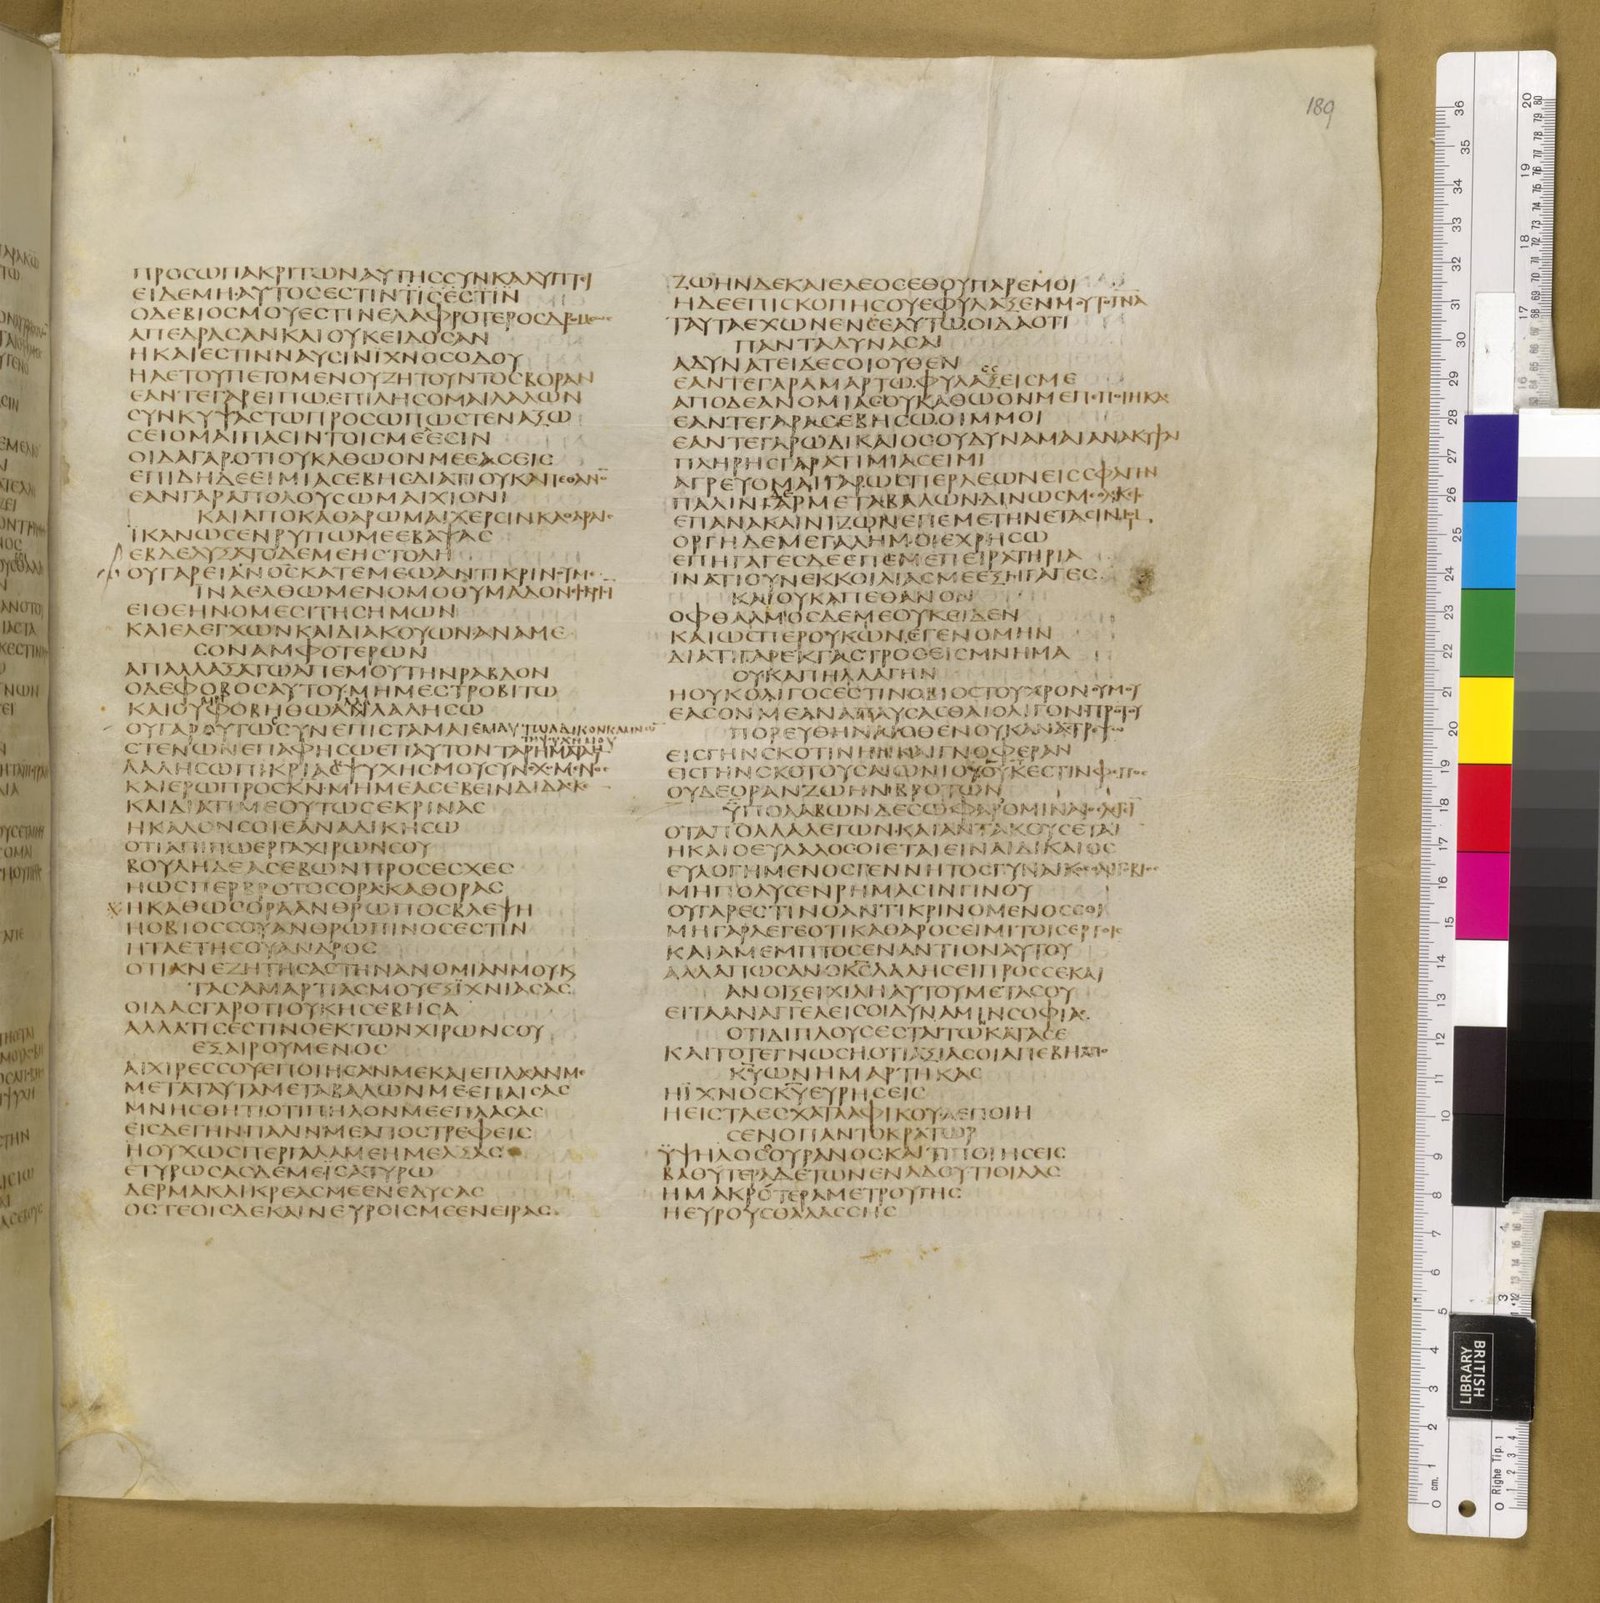 189
ΠΡΟCΩΠΑΚΡΙΤΩΝΑΥΤΗCCΥΝΚΑΛΥΠΤΙ
ΕΙΔΕΜΗΑΥΤΟCΕCΤΙΝΤΙCΕCΤΙΝ
ΟΔΕΒΙΟCΜΟΥΕCΤΙΝΕΛΑΦΡΟΤΕΡΟC
ΑΠΕΔΡΑCΑΝΚΑΙΟΥΚΕΙΔΟCΑΝ
ΗΚΑΙΕCΤΙΝΝΑΥCΙΝΪΧΝΟCΟΔΟΥ
ΗΑΕΤΟΥΠΕΤΟΜΕΝΟΥΖΗΤΟΥΝΤΟCΒΟΡΑΝ
ΕΑΝΤΕΓΑΡΕΙΠΩΕΠΙΛΗCΟΜΑΙΛΑΛΩΝ
CΥΝΚΥΨΑCΤΩΠΡΟCΩΠΩCΤΕΝΑΞΩ
CΕΙΟΜΑΙΠΑCΙΝΤΟΙCΜΕΛΕCΙΝ
ΟΙΔΑΓΑΡΟΤΙΟΥΚΑΘΩΟΝΜΕΕΑCΕΙC
ΕΠΙΔΗΔΕΕΙΜΙΑCΕΒΗCΔΙΑΤΙΟΥΚΑΠΕΘΑΝΟ
ΕΑΝΓΑΡΑΠΟΛΟΥCΩΜΑΙΧΙΟΝΙ
ΚΑΙΑΠΟΚΑΘΑΡΩΜΑΙΧΕΡCΙΝΚΑΘΑΡΑΙ
ΪΚΑΝΩCΕΝΡΥΠΩΜΕΕΒΑΨΑC
ΕΒΔΕΛΥΞΑΤΟΔΕΜΕΗCΤΟΛΗ
ΟΥΓΑΡΕΙΑΝΟCΚΑΤΕΜΕΩΑΝΤΙΚΡΙΝ
ΪΝΑΕΛΘΩΜΕΝΟΜΟΘΥΜΑΔΟΝ
ΕΙΘΕΗΝΟΜΕCΙΤΗCΗΜΩΝ
ΚΑΙΕΛΕΓΧΩΝΚΑΙΔΙΑΚΟΥΩΝΑΝΑΜΕ
CΟΝΑΜΦΟΤΕΡΩΝ
ΑΠΑΛΛΑΞΑΤΩΑΠΕΜΟΥΤΗΝΡΑΒΔΟΝ
ΟΔΕΦΟΒΟCΑΥΤΟΥΜΗΜΕCΤΡΟΒΙΤΩ
ΚΑΙΟΥΦΟΒΗΘΩΑΛΛΑΛΑΛΗCΩ
ΟΥΓΑΡΟΥΤΩCΥΝΕΠΙCΤΑΜΑΙ
CΤΕΝΩΝΕΠΑΦΗCΩΕΠΑΥΤΟΝΤΑΡΗΜΑΤΑ
ΛΑΛΗCΩΠΙΚΡΙΑΨΥΧΗCΜΟΥCΥΝΧΜΝ
ΚΑΙΕΡΩΠΡΟCΚΝΜΗΜΕΑCΕΒΕΙΝΔΙΔΑCΚ
ΚΑΙΔΙΑΤΙΜΕΟΥΤΩCΕΚΡΙΝΑC
ΗΚΑΛΟΝCΟΙΕΑΝΑΔΙΚΗCΩ
ΟΤΙΑΠΙΠΩΕΡΓΑΧΙΡΩΝCΟΥ
ΒΟΥΛΗΔΕΑCΕΒΩΝΠΡΟCΕCΧΕC
ΗΩCΠΕΡΒΡΟΤΟCΟΡΑΚΑΘΟΡΑC
ΗΚΑΘΩCΟΡΑΑΝΘΡΩΠΟCΒΛΕΨΗ
ΗΟΒΙΟCCΟΥΑΝΘΡΩΠΙΝΟCΕCΤΙΝ
ΗΤΑΕΤΗCΟΥΑΝΔΡΟC
ΟΤΙΑΝΕΖΗΤΗCΑCΤΗΝΑΝΟΜΙΑΝΜΟΥΚ
ΤΑCΑΜΑΡΤΙΑCΜΟΥΕΞΙΧΝΙΑCΑC
ΟΙΔΑCΓΑΡΟΤΙΟΥΚΗCΕΒΗCΑ
ΑΛΛΑΤΙCΕCΤΙΝΟΕΚΤΩΝΧΙΡΩΝCΟΥ
ΕΞΑΙΡΟΥΜΕΝΟC
ΑΙΧΙΡΕCCΟΥΕΠΟΙΗCΑΝΜΕΚΑΙΕΠΛΑΧΑΝΜ
ΜΕΤΑΤΑΥΤΑΜΕΤΑΒΑΛΩΝΜΕΕΠΑΙCΑC
ΜΝΗCΘΗΤΙΟΤΙΠΗΛΟΝΜΕΕΠΛΑCΑC
ΕΙCΔΕΓΗΝΠΑΛΙΝΜΕΑΠΟCΤΡΕΦΕΙC
ΗΟΥΧΩCΠΕΡΓΑΛΑΜΕΗΜΕΛΞΑC
ΕΤΥΡΩCΑCΔΕΜΕΪCΑΤΥΡΩ
ΔΕΡΜΑΚΑΙΚΡΕΑCΜΕΕΝΕΔΥCΑC
ΟCΤΕΟΙCΔΕΚΑΙΝΕΥΡΟΙCΜΕΕΝΕΙΡΑC
ΖΩΗΝΔΕΚΑΙΕΛΕΟCΕΘΟΥΠΑΡΕΜΟΙ
ΗΔΕΕΠΙCΚΟΠΗCΟΥΕΦΥΛΑΞΕΝΜΟΥΤΟΠΝΑ
ΤΑΥΤΑΕΧΩΝΕΝCΕΑΥΤΩΟΙΔΑΟΤΙ
ΠΑΝΤΑΔΥΝΑCΑΙ
ΑΔΥΝΑΤΕΙΔΕCΟΙΟΥΘΕΝ
ΕΑΝΤΕΓΑΡΑΜΑΡΤΩΦΥΛΑΞΕΙCΜΕ
ΑΠΟΔΕΑΝΟΜΙΑCΟΥΚΑΘΩΟΝΜΕΠΕΠΟΙΗΚΑ
ΕΑΝΤΕΓΑΡΑCΕΒΗCΩΟΙΜΜΟΙ
ΕΑΝΤΕΓΑΡΩΔΙΚΑΙΟCΟΥΔΥΝΑΜΑΙΑΝΑΚΥΨΑΙ
ΠΛΗΡΗCΓΑΡΑΤΙΜΙΑCΕΙΜΙ
ΑΓΡΕΥΟΜΑΙΓΑΡΩCΠΕΡΛΕΩΝΕΙCCΦΑΓΗΝ
ΠΑΛΙΝΓΑΡΜΕΤΑΒΑΛΩΝΔΙΝΩCΜΟΛΕΚΙ
ΕΠΑΝΑΚΑΙΝΙΖΩΝΕΠΕΜΕΤΗΝΕΤΑCΙΝΜΟΥ
ΟΡΓΗΔΕΜΕΓΑΛΗΜΟΙΕΧΡΗCΩ
ΕΠΗΓΑΓΕCΔΕΕΠΕΜΕΠΕΙΡΑΤΗΡΙΑ
ΪΝΑΤΙΟΥΝΕΚΚΟΙΛΙΑCΜΕΕΞΗΓΑΓΕC
ΚΑΙΟΥΚΑΠΕΘΑΝΟΝ
ΟΦΘΑΛΜΟCΔΕΜΕΟΥΚΕΙΔΕΝ
ΚΑΙΩCΠΕΡΟΥΚΩΝΕΓΕΝΟΜΗΝ
ΔΙΑΤΙΓΑΡΕΚΓΑCΤΡΟCΕΙCΜΝΗΜΑ
ΟΥΚΑΠΗΛΛΑΓΗΝ
ΗΟΥΚΟΛΙΓΟCΕCΤΙΝΟΒΙΟCΤΟΥΧΡΟΝΟΥΜΟΥ
ΕΑCΟΝΜΕΑΝΑΠΑΥCΑCΘΑΙΟΛΙΓΟΝΠΡΟΤΟΥ
ΠΟΡΕΥΘΗΝΑΙΟΘΕΝΟΥΚΑΝΑCΤΡΕΨΩ
ΕΙCΓΗΝCΚΟΤΙΝΗΝΚΑΙΓΝΟΦΕΡΑΝ
ΕΙCΓΗΝCΚΟΤΟΥCΑΙΩΝΙΟΥΟΥΟΥΚΕCΤΙΝΦ
ΟΥΔΕΟΡΑΝΖΩΗΝΒΡΟΤΩΝ
ΫΠΟΛΑΒΩΝΔΕCΩΦΑΡΟΜΙΝΑΙ
ΟΤΑΠΟΛΛΑΛΕΓΩΝΚΑΙΑΝΤΑΚΟΥCΕΤΑΙ
ΗΚΑΙΟΕΥΛΑΛΟCΟΙΕΤΑΙΕΙΝΑΙΔΙΚΑΙΟC
ΕΥΛΟΓΗΜΕΝΟCΓΕΝΝΗΤΟCΓΥΝΑΙΚΟC
ΜΗΠΟΛΥCΕΝΡΗΜΑCΙΝΓΙΝΟΥ
ΟΥΓΑΡΕCΤΙΝΟΑΝΤΙΚΡΙΝΟΜΕΝΟCCΟΙ
ΜΗΓΑΡΛΕΓΕΟΤΙΚΑΘΑΡΟCΕΙΜΙΤΟΙCΕΡΓΟΙC
ΚΑΙΑΜΕΜΠΤΟCΕΝΑΝΤΙΟΝΑΥΤΟΥ
ΑΛΛΑΠΩCΑΝΟΚCΛΑΛΗCΕΙΠΡΟCCΕΚΑΙ
ΑΝΟΙΞΕΙΧΙΛΗΑΥΤΟΥΜΕΤΑCΟΥ
ΕΙΤΑΑΝΑΓΓΕΛΕΙCΟΙΔΥΝΑΜΙΝCΟΦΙΑC
ΟΤΙΔΙΠΛΟΥCΕCΤΑΙΤΩΚΑΤΑCΕ
ΚΑΙΤΟΤΕΓΝΩCΗΟΤΙΑΞΙΑCΟΙΑΠΕΒΗΑΠΟ
ΚΥΩΝΗΜΑΡΤΗΚΑC
ΗΪΧΝΟCΚΥΕΥΡΗCΕΙC
ΗΕΙCΤΑΕCΧΑΤΑΑΦΙΚΟΥΑΕΠΟΙΗ
CΕΝΟΠΑΝΤΟΚΡΑΤΩΡ
ΫΨΗΛΟCΟΥΡΑΝΟCΚΑΙΤΙΠΟΙΗCΕΙC
ΒΑΘΥΤΕΡΑΔΕΤΩΝΕΝΑΔΟΥΤΙΟΙΔΑC
ΗΜΑΚΡΟΤΕΡΑΜΕΤΡΟΥΓΗC
ΗΕΥΡΟΥCΘΑΛΑCCΗC
BRITISH
LIBRARY